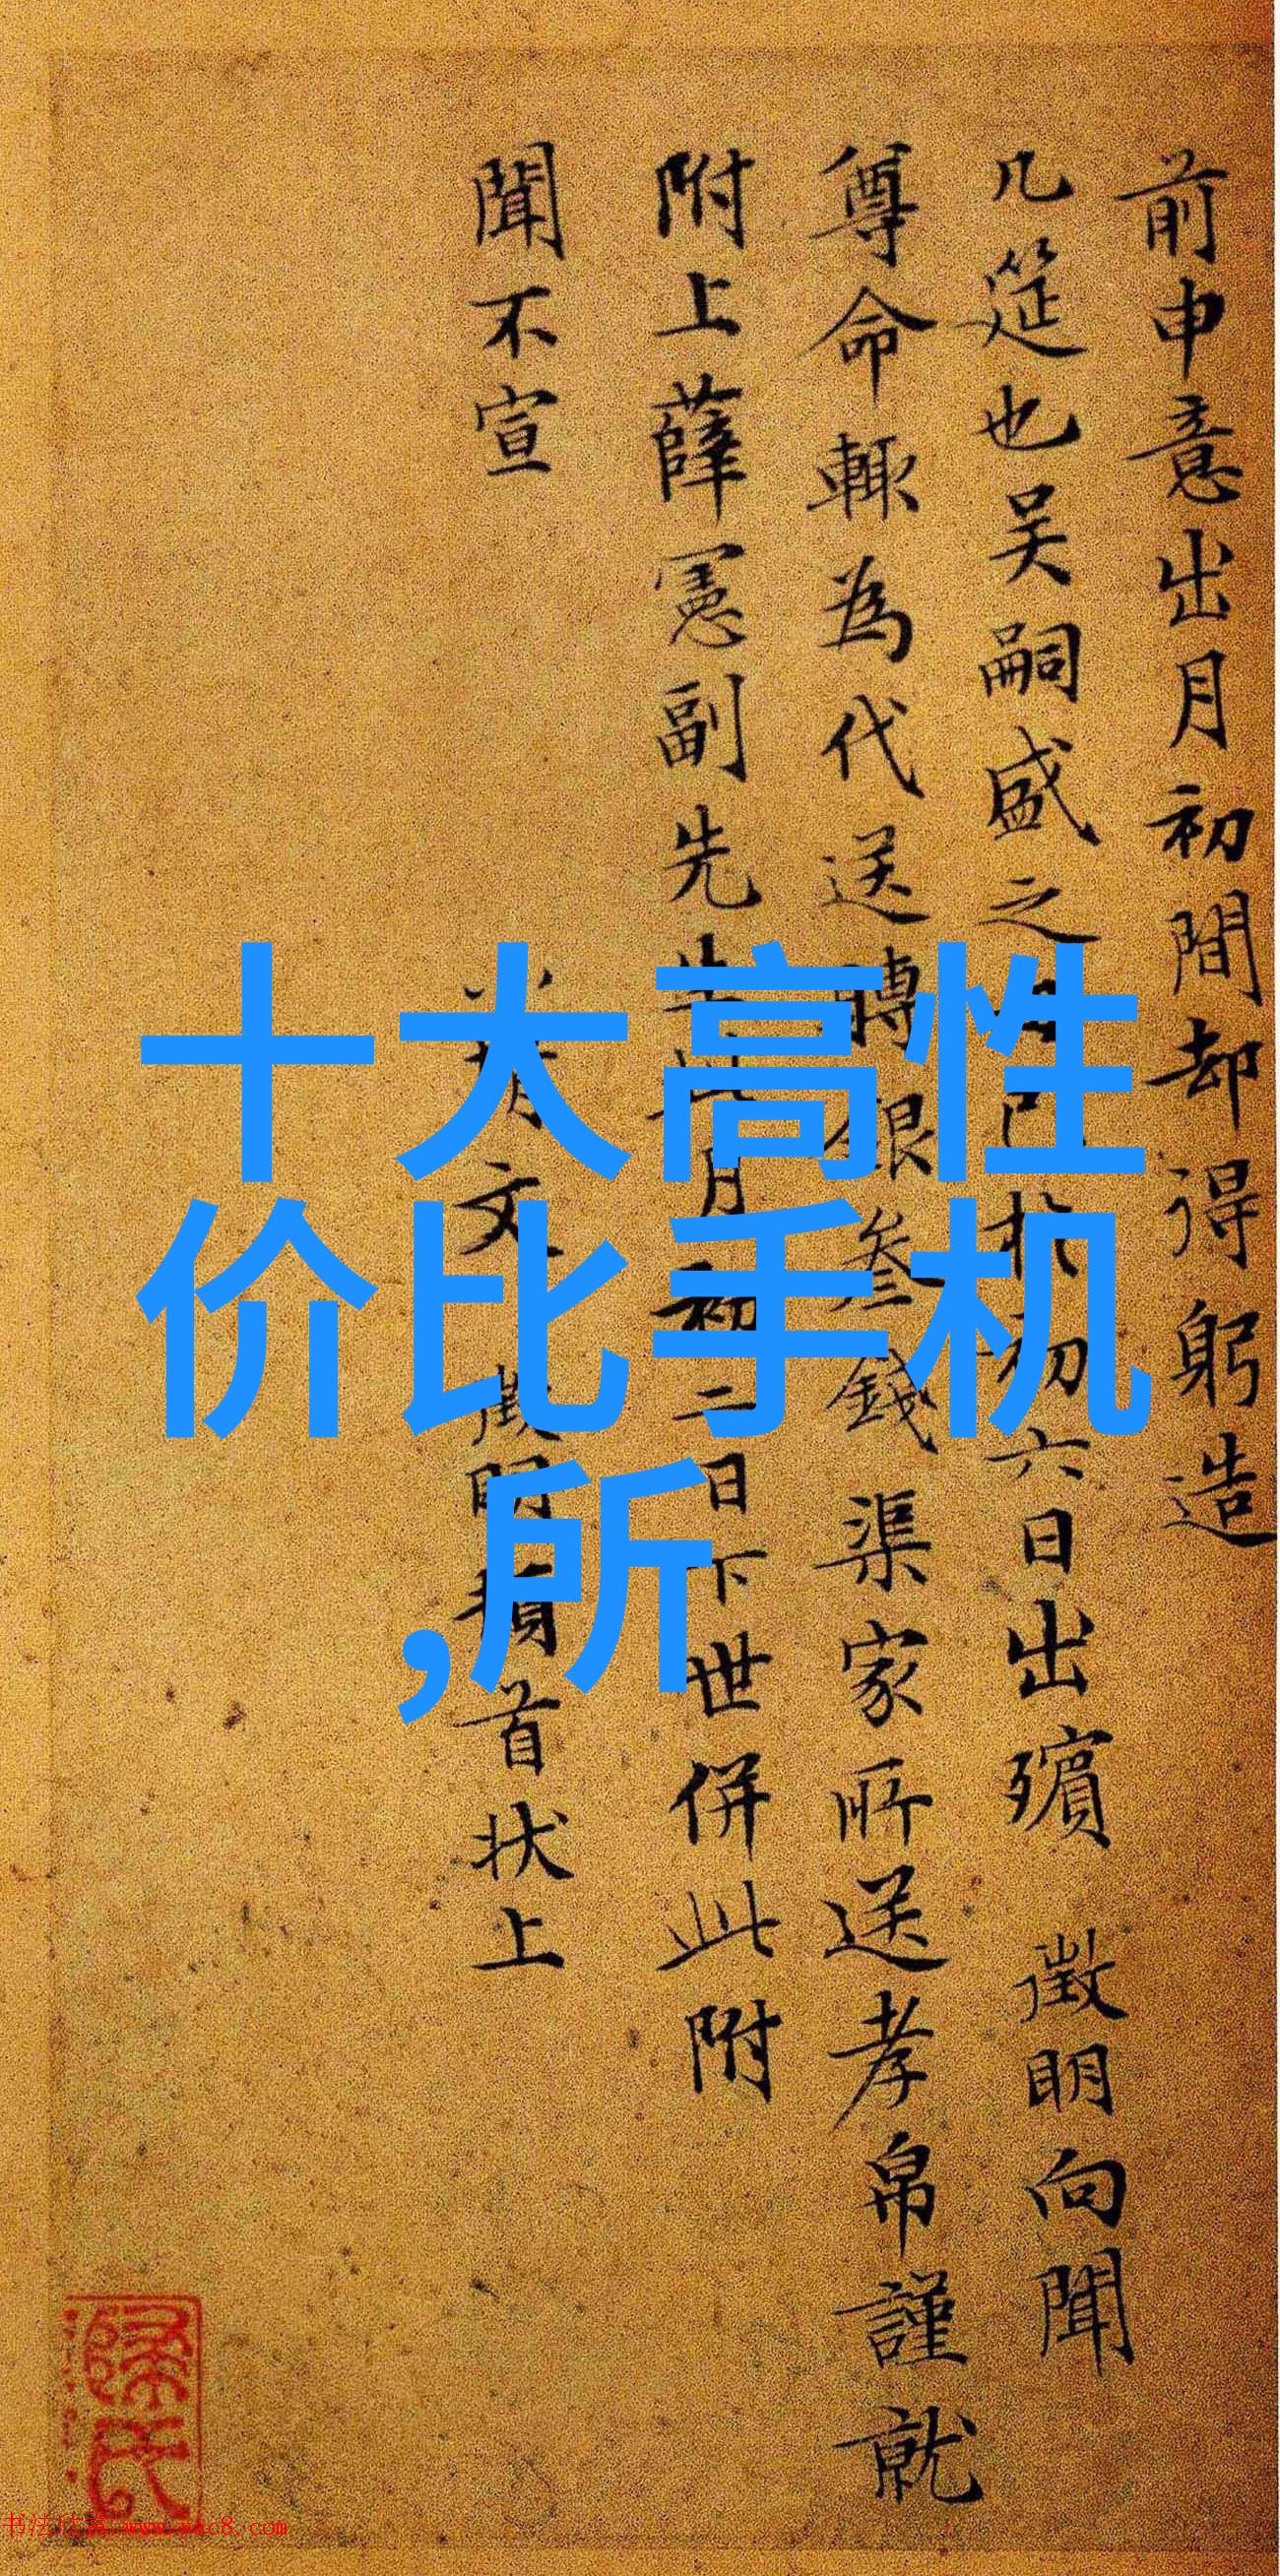 前申意出月初間却得躬造
几筵也吴嗣盛之
初六日出殯 徵明向聞
尊命輒為代送
銀叁錢渠家所送孝帛謹就
附上薛憲副先
月初二日下世併此附
聞不宣
文徵明頓首状上
十大高性
价比手机
,所
书法欣赏 www.yac8.com